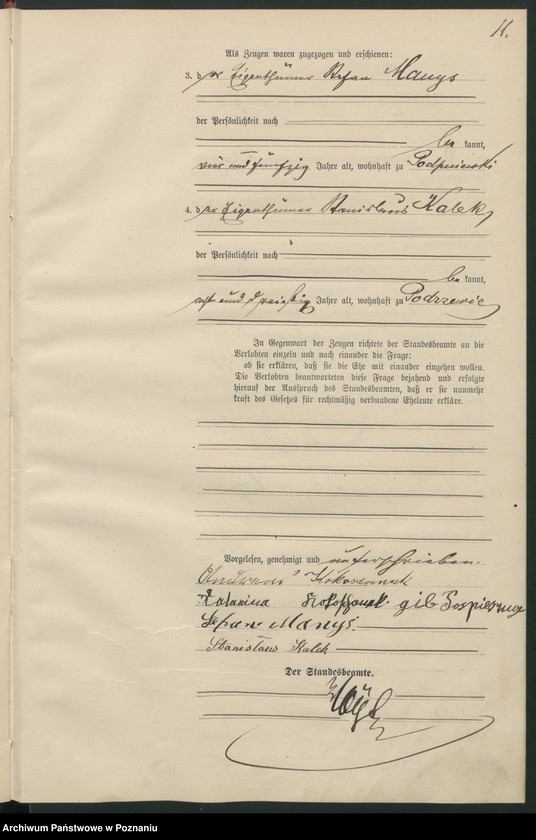 11.
Als Zeugen waren zugezogen und erschienen:
3. der Eigenthümer Stefan Manys
der Persönlichkeit nach
be kannt,
vier und fünfzig Jahre alt, wohnhaft zu Podpniewki
4. der Eigenthümer Stanislaus Kalek,
der Persönlichkeit nach
be kannt,
acht und dreißig Jahre alt, wohnhaft zu Podrzewie
In Gegenwart der Zeugen richtete der Standesbeamte an die
Verlobten einzeln und nach einander die Frage:
ob sie erklären, daß sie die Ehe mit einander eingehen wollen.
Die Verlobten beantworteten diese Frage bejahend und erfolgte
hierauf der Ausspruch des Standesbeamten, daß er sie nunmehr
kraft des Gesetzes für rechtmäßig verbundene Eheleute erkläre.
Vorgelesen, genehmigt und unterschrieben.
Katarina gib
Stefan Manys.
Stanisław Kalek
Der Standesbeamte.
Archiwum Państwowe w Poznaniu